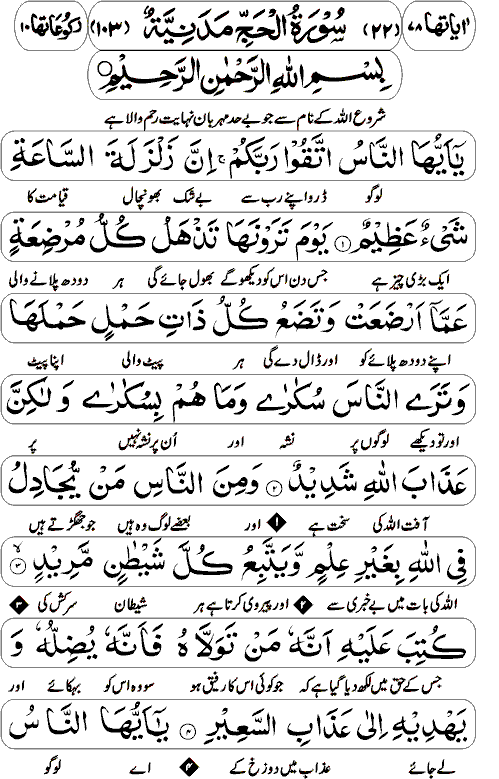 اٰیاتھا ۷۸ (۲۲) سُوْرَةُ الْحَجِّ مَدَنِیَّةٌ (۱۰۳) رکوعاتھا ۱۰
بِسْمِ اللهِ الرَّحْمٰنِ الرَّحِیْمِ
شروع اللہ کے نام سے جو بے حد مہربان نہایت رحم والا ہے
یٰۤاَیُّهَا النَّاسُ اتَّقُوْا رَبَّكُمْ ۚ اِنَّ زَلْزَلَةَ السَّاعَةِ
لوگو ڈرو اپنے رب سے بے شک بھونچال قیامت کا
شَیْءٌ عَظِیْمٌ ۱ یَوْمَ تَرَوْنَهَا تَذْهَلُ كُلُّ مُرْضِعَةٍ
ایک بڑی چیز ہے جس دن اس کو دیکھو گے بھول جائے گی ہر دودھ پلانے والی
عَمَّاۤ اَرْضَعَتْ وَتَضَعُ كُلُّ ذَاتِ حَمْلٍ حَمْلَهَا
اپنے دودھ پلائے کو اور ڈال دے گی ہر پیٹ والی اپنا پیٹ
وَتَرَی النَّاسَ سُكٰرٰی وَمَا هُمْ بِسُكٰرٰی وَلٰكِنَّ
اور تو دیکھے لوگوں پر نشہ اور اُن پر نشہ نہیں پر
عَذَابَ اللهِ شَدِیْدٌ ۲ وَمِنَ النَّاسِ مَنْ یُّجَادِلُ
آفت اللہ کی سخت ہے ۱ اور بعضے لوگ وہ ہیں جو جھگڑتے ہیں
فِی اللهِ بِغَیْرِ عِلْمٍ وَّیَتَّبِعُ كُلَّ شَیْطٰنٍ مَّرِیْدٍ ۳
اللہ کی بات میں بے خبری سے ۲ اور پیروی کرتا ہے ہر شیطان سرکش کی ۳
كُتِبَ عَلَیْهِ اَنَّهٗ مَنْ تَوَلَّاهُ فَاَنَّهٗ یُضِلُّهٗ وَ
جس کے حق میں لکھ دیا گیا ہے کہ جو کوئی اس کا رفیق ہو سو وہ اس کو بہکائے اور
یَهْدِیْهِ اِلٰی عَذَابِ السَّعِیْرِ ۴ یٰۤاَیُّهَا النَّاسُ
لے جائے عذاب میں دوزخ کے ۴ اے لوگو